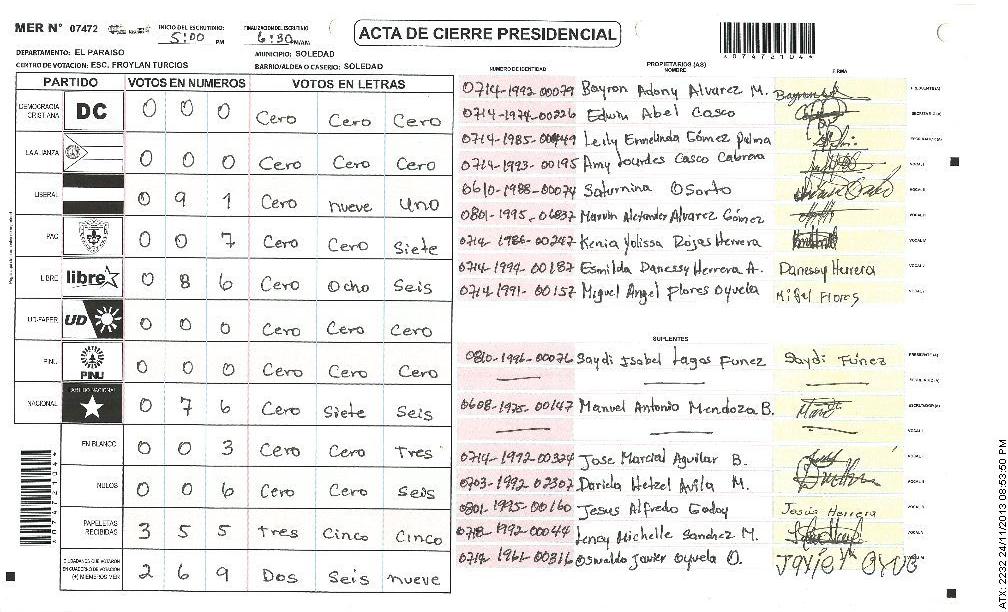 MER N° 07472
INICIO DEL ESCRUTINIO: 5:00 PM
FINALIZACION DEL ESCRUTINIO 6:30
ACTA DE CIERRE PRESIDENCIAL
DEPARTAMENTO: EL PARAISO
MUNICIPIO: SOLEDAD
CENTRO DE VOTACION: ESC. FROYLAN TURCIOS
BARRIO/ALDEA O CASERIO: SOLEDAD
PARTIDO VOTOS EN NUMEROS VOTOS EN LETRAS
DEMOCRACIA CRISTIANA DC 0 0 0 Cero Cero Cero
LA ALIANZA 0 0 0 Cero Cero Cero
LIBERAL 0 9 1 Cero nueve Uno
PAC 0 0 7 Cero Cero Siete
LIBRE libre 0 8 6 Cero Ocho Seis
UD-FAPER UD 0 0 0 Cero Cero Cero
PINU PINU 0 0 0 Cero Cero Cero
NACIONAL PARTIDO NACIONAL 0 7 6 Cero Siete Seis
EN BLANCO 0 0 3 Cero Cero Tres
NULOS 0 0 6 Cero Cero Seis
PAPELETAS RECIBIDAS 3 5 5 Tres Cinco Cinco
CIUDADANOS QUE VOTARON EN CUADERNO DE VOTACION (+) MIEMBROS MER 2 6 9 Dos Seis nueve
NUMERO DE IDENTIDAD PROPIETARIOS (AS) NOMBRE FIRMA
0714-1992-00079 Bayron Adony Alvarez M.
0714-1974-00226 Edwin Abel Casco
0714-1985-00449 Leily Ermelinda Gómez Palma
0714-1993-00195 Amy Lourdes Casco Cabrera
0610-1988-00074 Saturnina Osorto
0801-1995-06837 Marvin Alexander Alvarez Gómez
0714-1986-00247 Kenia Yolissa Rojas Herrera
0714-1994-00187 Esmilda Danessy Herrera A. Danessy Herrera
0714-1991-00157 Miguel Angel Flores Oyuela Migel Flores
SUPLENTES
0810-1996-00076 Saydi Isabel Lagos Funez Saydi Fúnez
0608-1975-00147 Manuel Antonio Mendoza B.
0714-1992-00324 Jose Marcial Aguilar B.
0703-1992-02307 Dariela Hetzel Avila M.
0801-1995-00160 Jesus Alfredo Godoy Jesus Herrera
0718-1992-00044 Lenny Michelle Sanchez M.
0714-1961-00316 Oswaldo Javier Oyuela O.
ATX: 2232 24/11/2013 08:53:50 PM